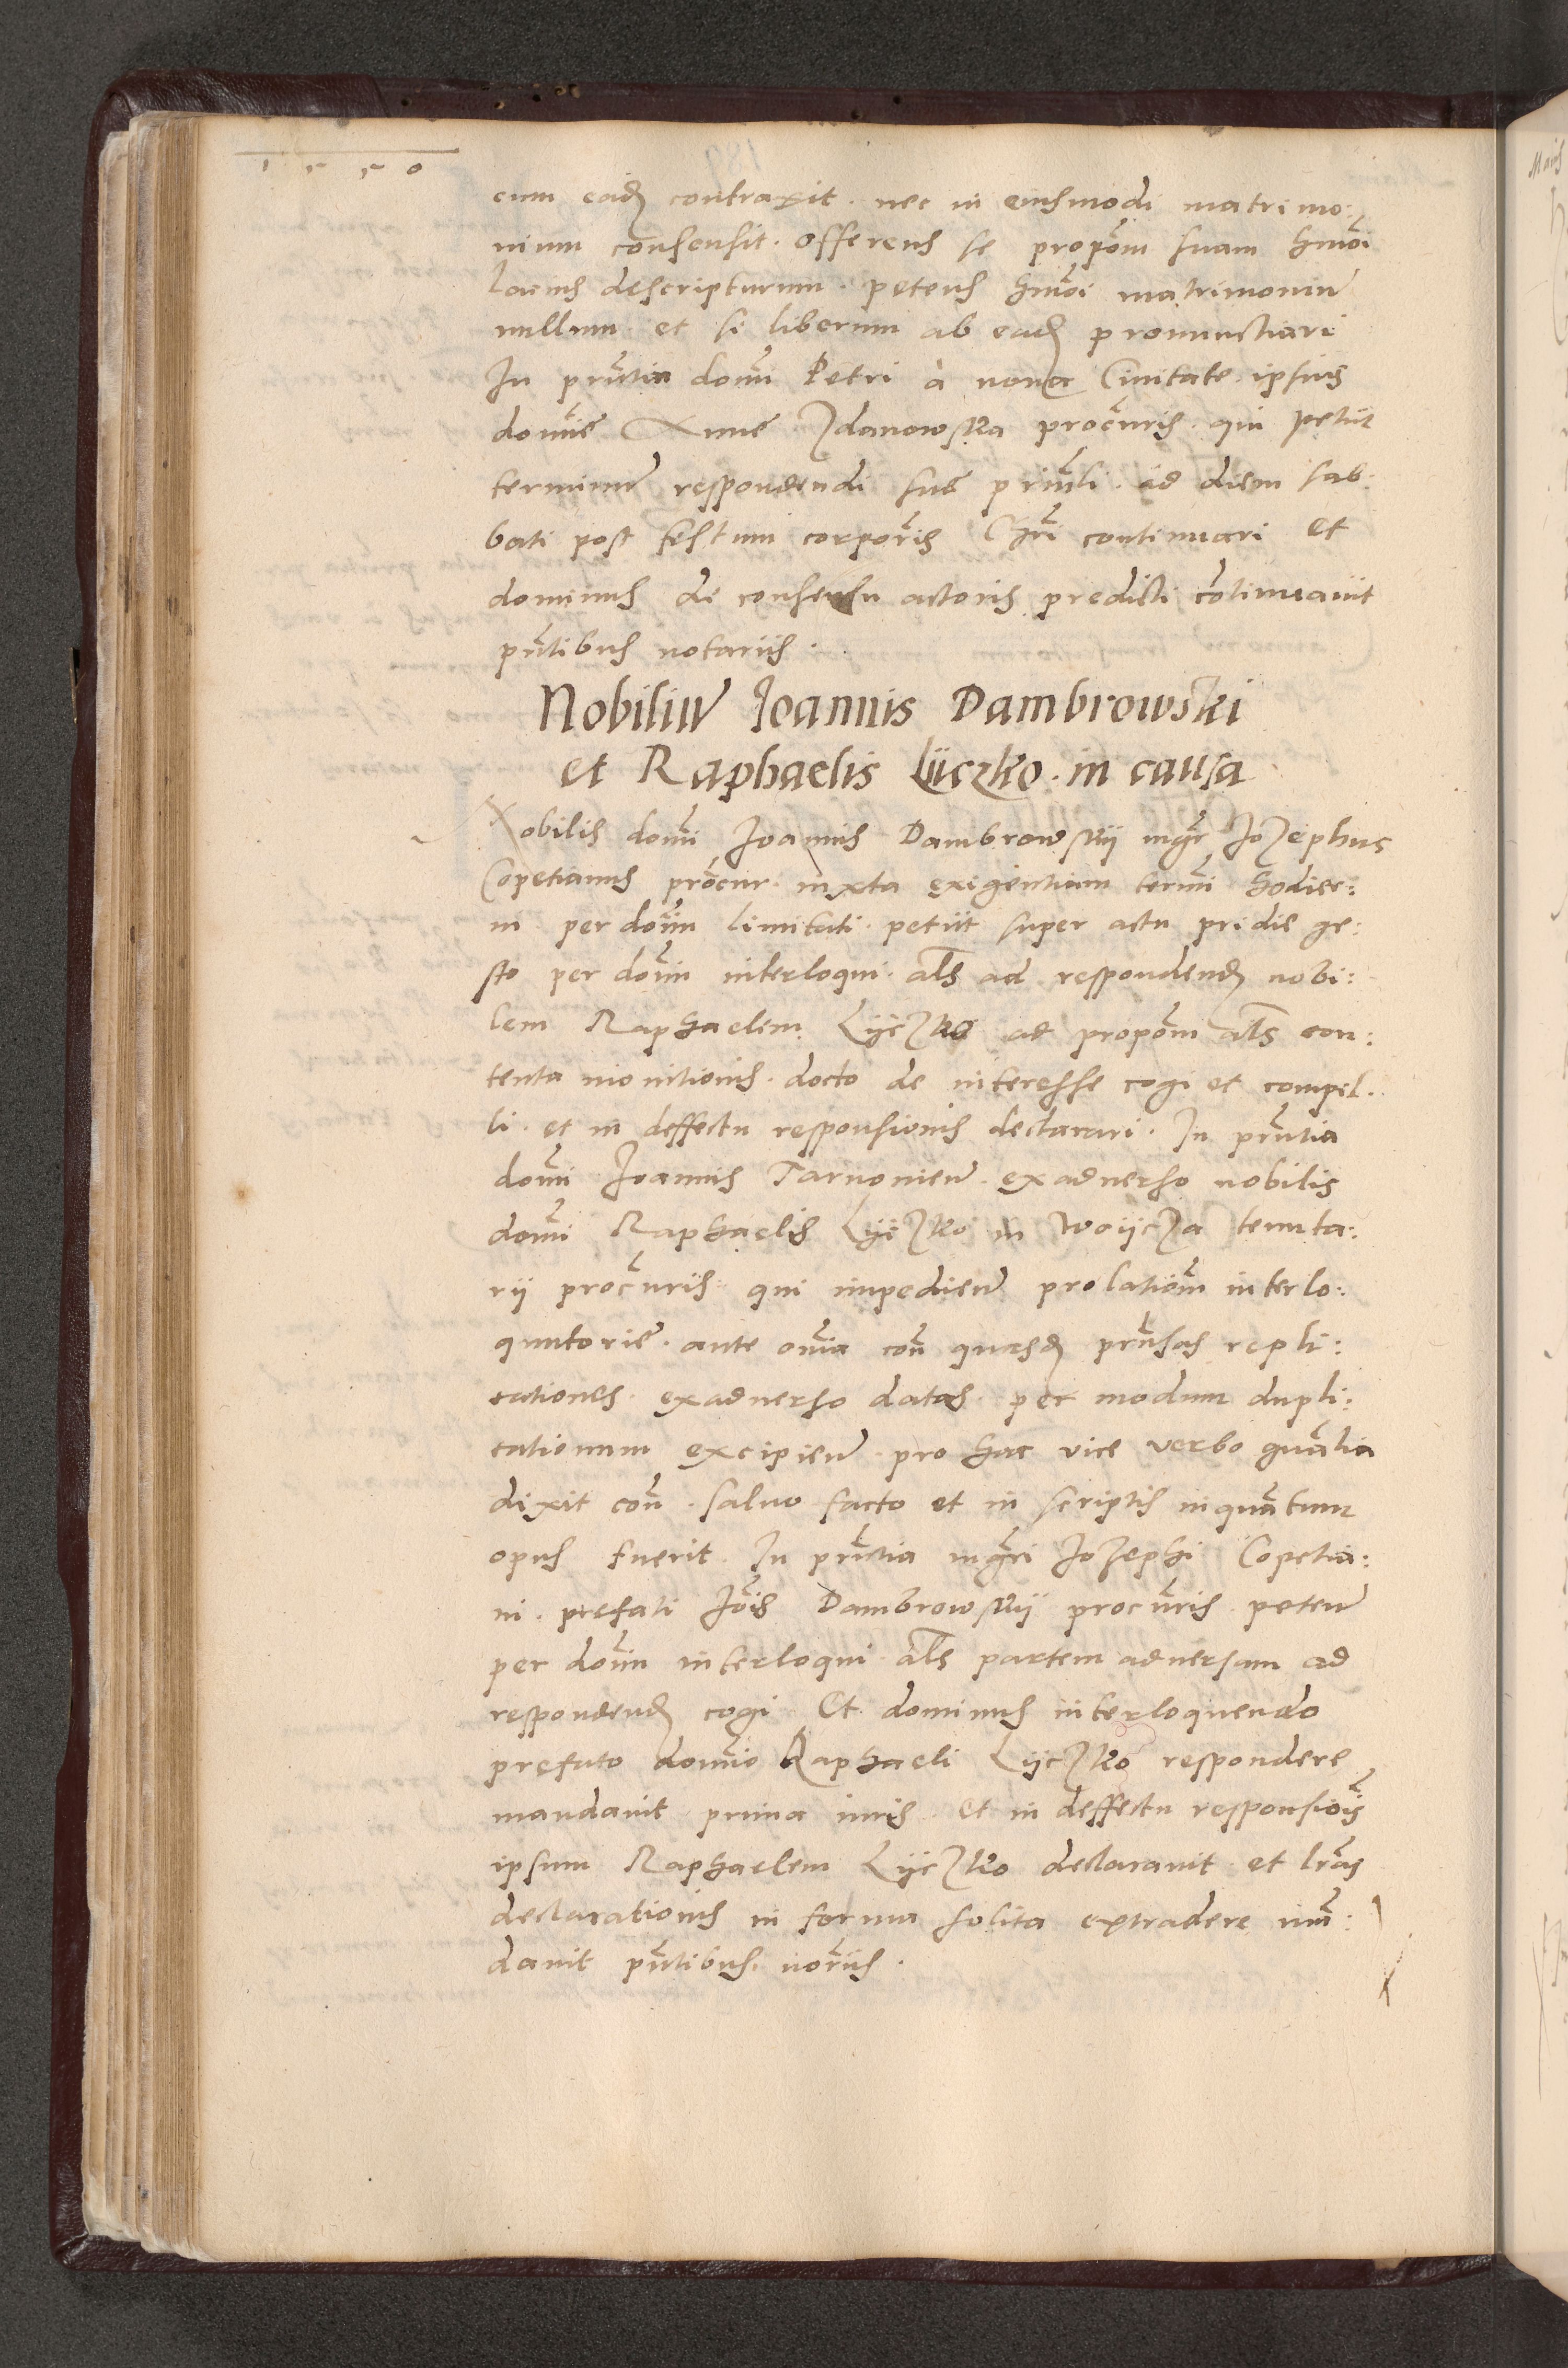 1550
cum ead contraxit. nec in eiusmodi matrimo:
nium consensit. offerens se propom̃ suam hmõi
lacius descripturum. petens hmõi matrimoniũ
nullum. et se liberum ab ead pronunctiari
In pñtia domĩ Petri à noua Ciuitate. ipsius
domiẽ Anne Zdanowska procũris. qui petiit
terminũ respondendi sue prinli. ad diem sab:
bati post festum corporis Chrĩ continuari et
dominus de consensu actoris predicti cõtinuauit
pñtibus notariis.
Nobiliũ Joannis Dambrowski
et Raphaelis Lÿczko. in causa
Nobilis domĩ Joannis Dambrowskij mgr̃ Jozephus
Copetianus procur̃. iuxta exigentiam termĩ hodier:
ni per dom̃ limitati. petiit super actu pridie ge:
sto per dom̃ interloqui. als̃ ad respondend nobi:
lem Raphaelem Lyczko ad propom̃ als̃ con:
tenta monitionis. docto de interesse cogi et compel.
li. et in deffectu responsionis declarari. In pñtia
domĩ Joannis Tarnonień. exaduerso nobilis
domĩ Raphaelis Lÿczko in Woÿcza tenuta:
rij procũris. qui impedień prolatiom̃ interlo:
qutorie. ante omĩa coñ quasd pñsas repli:
cationes. exaduerso datas. per modum dupli:
cationum excipień. pro hac vice verbo gñalia
dixit coñ. saluo facto et in scriptis inquãtum
opus fuerit. In pñtia mgr̃i Jozephi Copetia:
ni. prefati Jois̃ Dambrowskij procũris peteñ
per dom̃ interloqui. als̃ partem aduersam ad
respondend cogi. Et dominus interloquendo
prefato domĩo Raphaeli Lÿczko respondere
mandauit prima iuris. Et in deffectu responsiois̃
ipsum Raphaelem Lÿczko declarauit. et lrãs
declarationis in forma solita extradere mañ:
dauit pñtibus. norĩis.